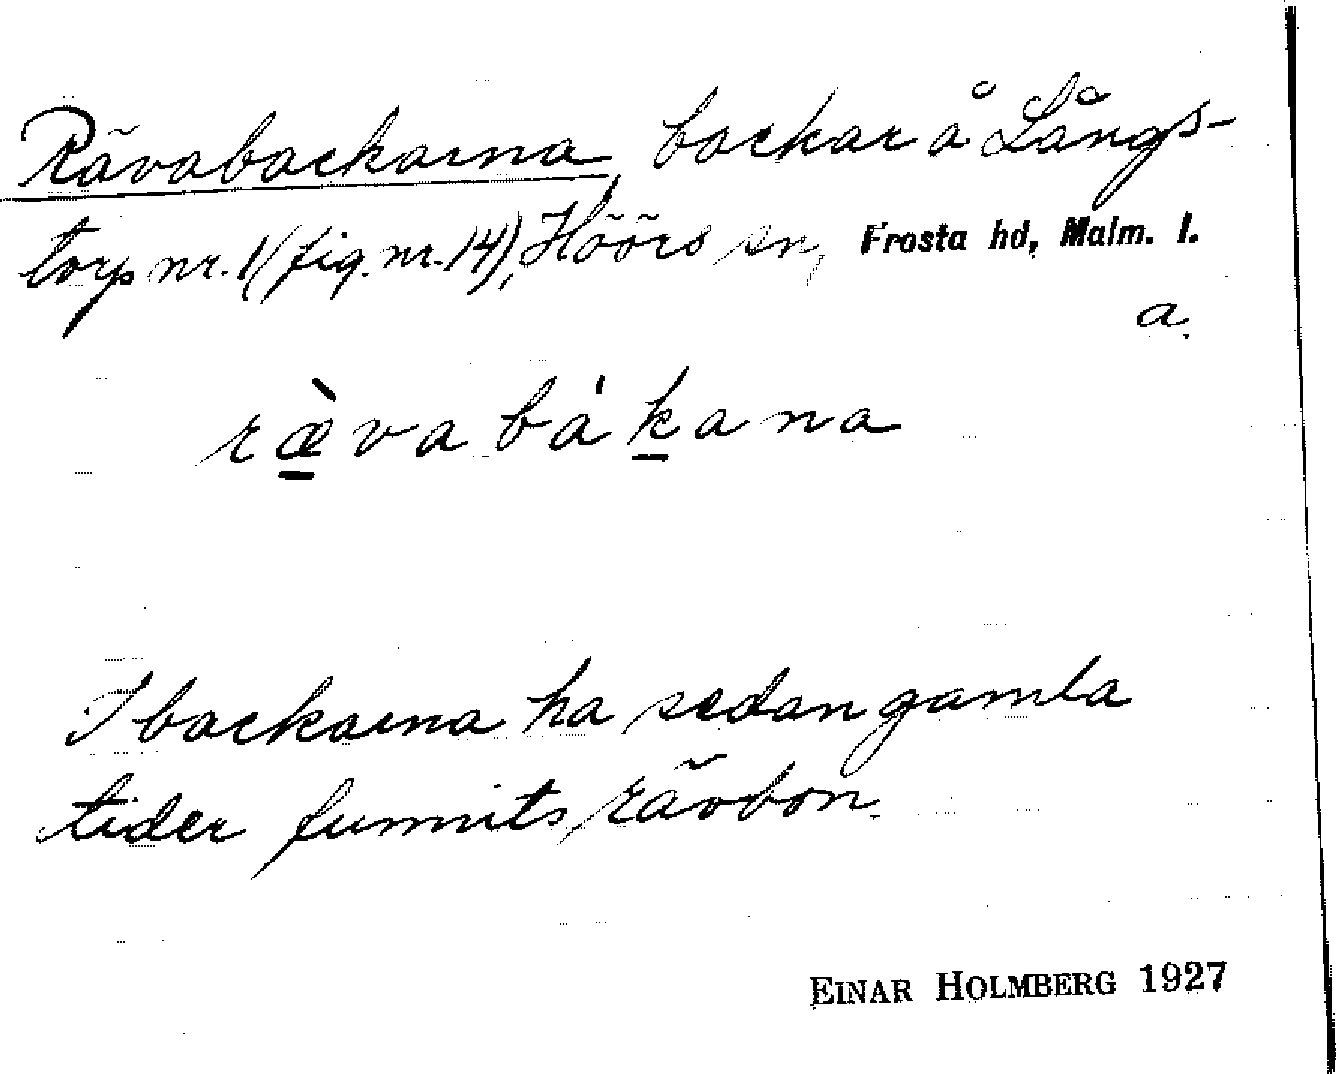 Rävabackarna, backar å Långs-
torp nr. 1 (fig. nr. 14), Höörs sn, Frosta hd, Malm. l.
a.
ræ̱̀vabák̠ana
I backarna ha sedan gamla
tider funnits rävbon.
EINAR HOLMBERG 1927